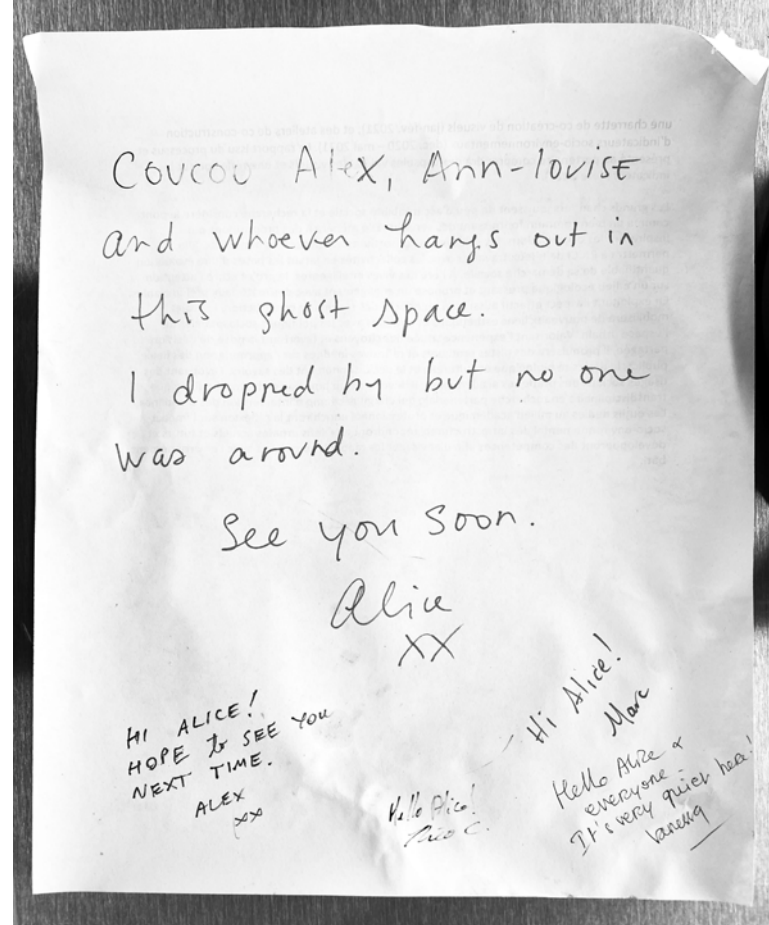 Coucou Alex, Ann-Louise
and whoever hangs out in
this ghost space.
I dropped by but no one
was around.
See you soon.
Alice
XX
HI ALICE!
HOPE to SEE YOU
NEXT TIME.
ALEX
xx
Hello Alice!
C.
Hi Alice!
Marc
Hello Alice &
everyone
It's very quiet here!
Vanessa